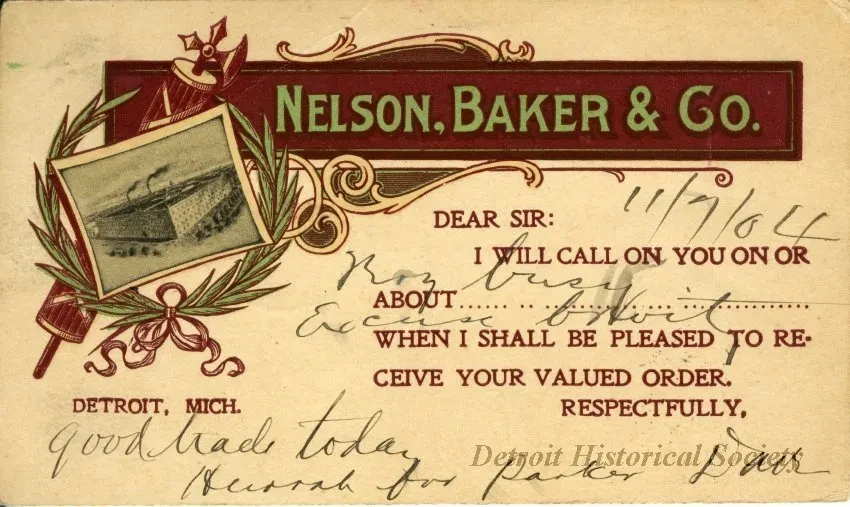 NELSON, BAKER & CO.
11/7/04
DEAR SIR:
I WILL CALL ON YOU ON OR
busy
ABOUT
Excuse
WHEN I SHALL BE PLEASED TO RE-
CEIVE YOUR VALUED ORDER.
DETROIT, MICH.
RESPECTFULLY,
good trade today
Detroit Historical Society
Hurrah for Parker Dave